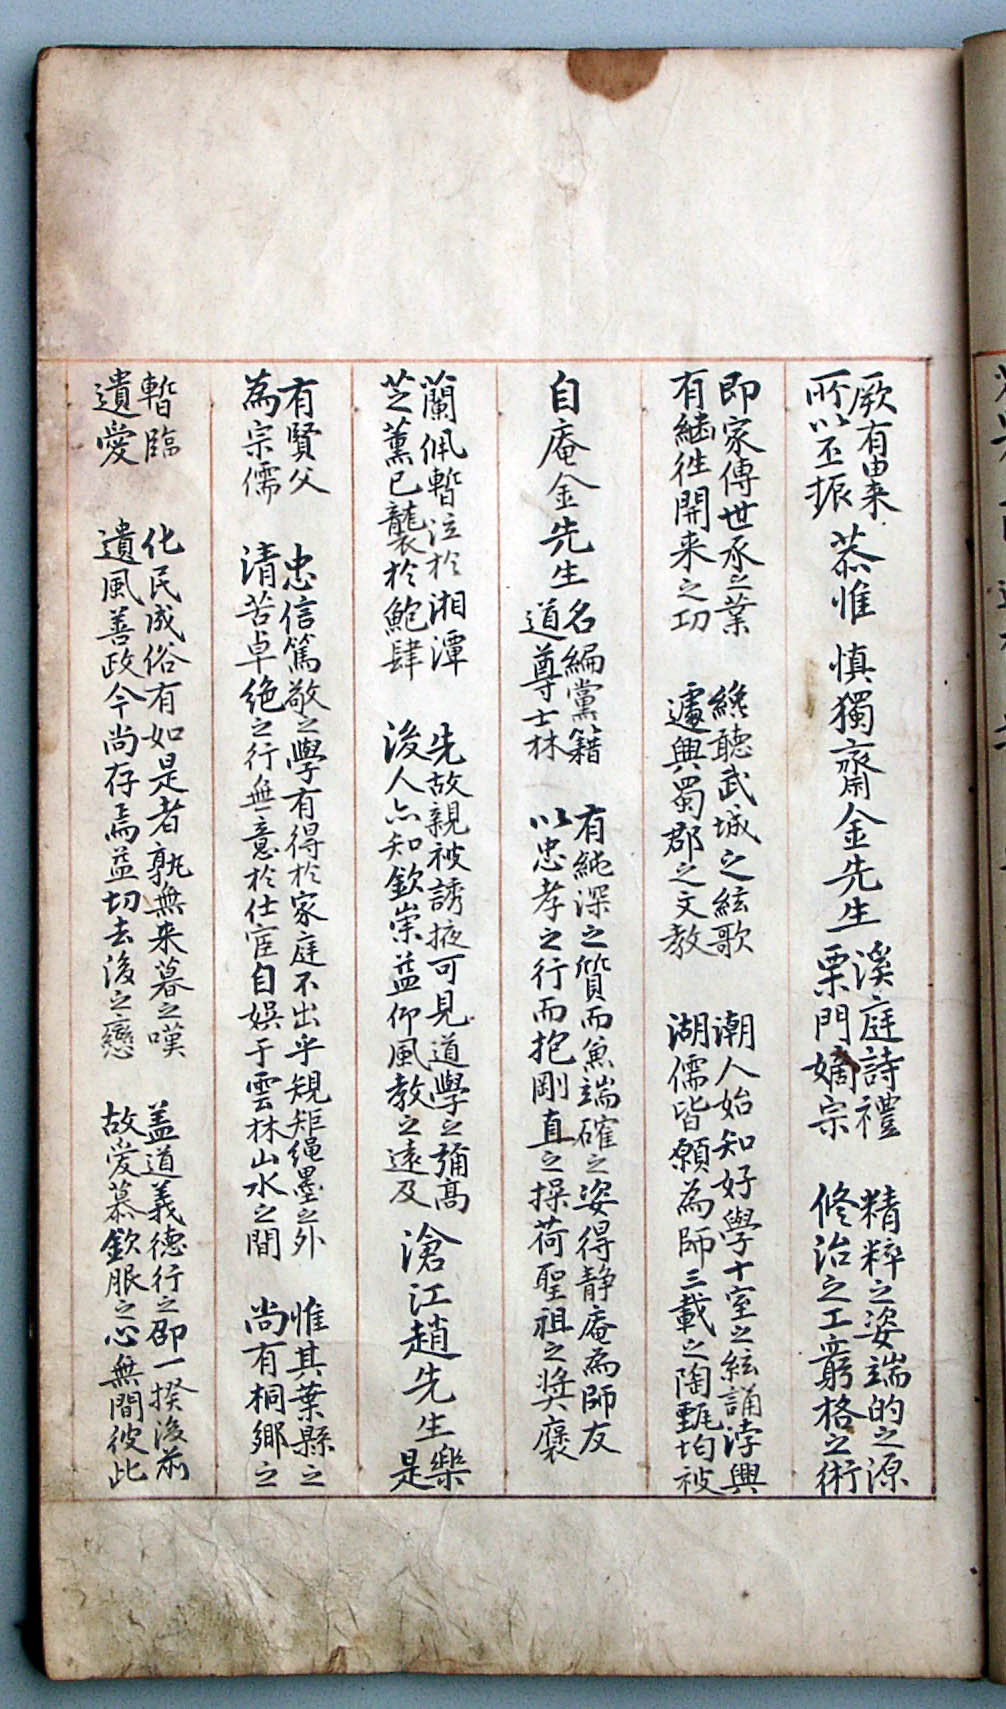 厥有由来
所以丕振
恭惟 慎獨齋金先生
溪庭詩禮
栗門嫡宗
精粹之姿端的之源
修治之工窮格之術
即家傳世承之業
有繼徃開来之功
纔聽武城之絃歌
遽興蜀郡之文教
潮人始知好學十室之絃誦浡興
湖儒皆願為師三載之陶甄均被
自庵金先生
名編黨籍
道尊士林
有純深之質而兼端確之姿得静庵為師友
以忠孝之行而抱剛直之操荷聖祖之奬褒
蘭佩暫泣於湘潭
芝薰已襲於鮑肆
先故親被誘掖可見道學之彌高
後人亦知欽崇益仰風教之遠及
滄江趙先生
樂
是
有賢父
為宗儒
忠信篤敬之學有得於家庭不出乎規矩繩墨之外
清苦卓絶之行無意於仕宦自娛于雲林山水之間
惟其葉縣之
尚有桐鄉之
暫臨
遺愛
化民成俗有如是者孰無来暮之嘆
遺風善政今尚存焉益切去後之戀
盖道義德行之卲一揆後前
故愛慕欽服之心無間彼此